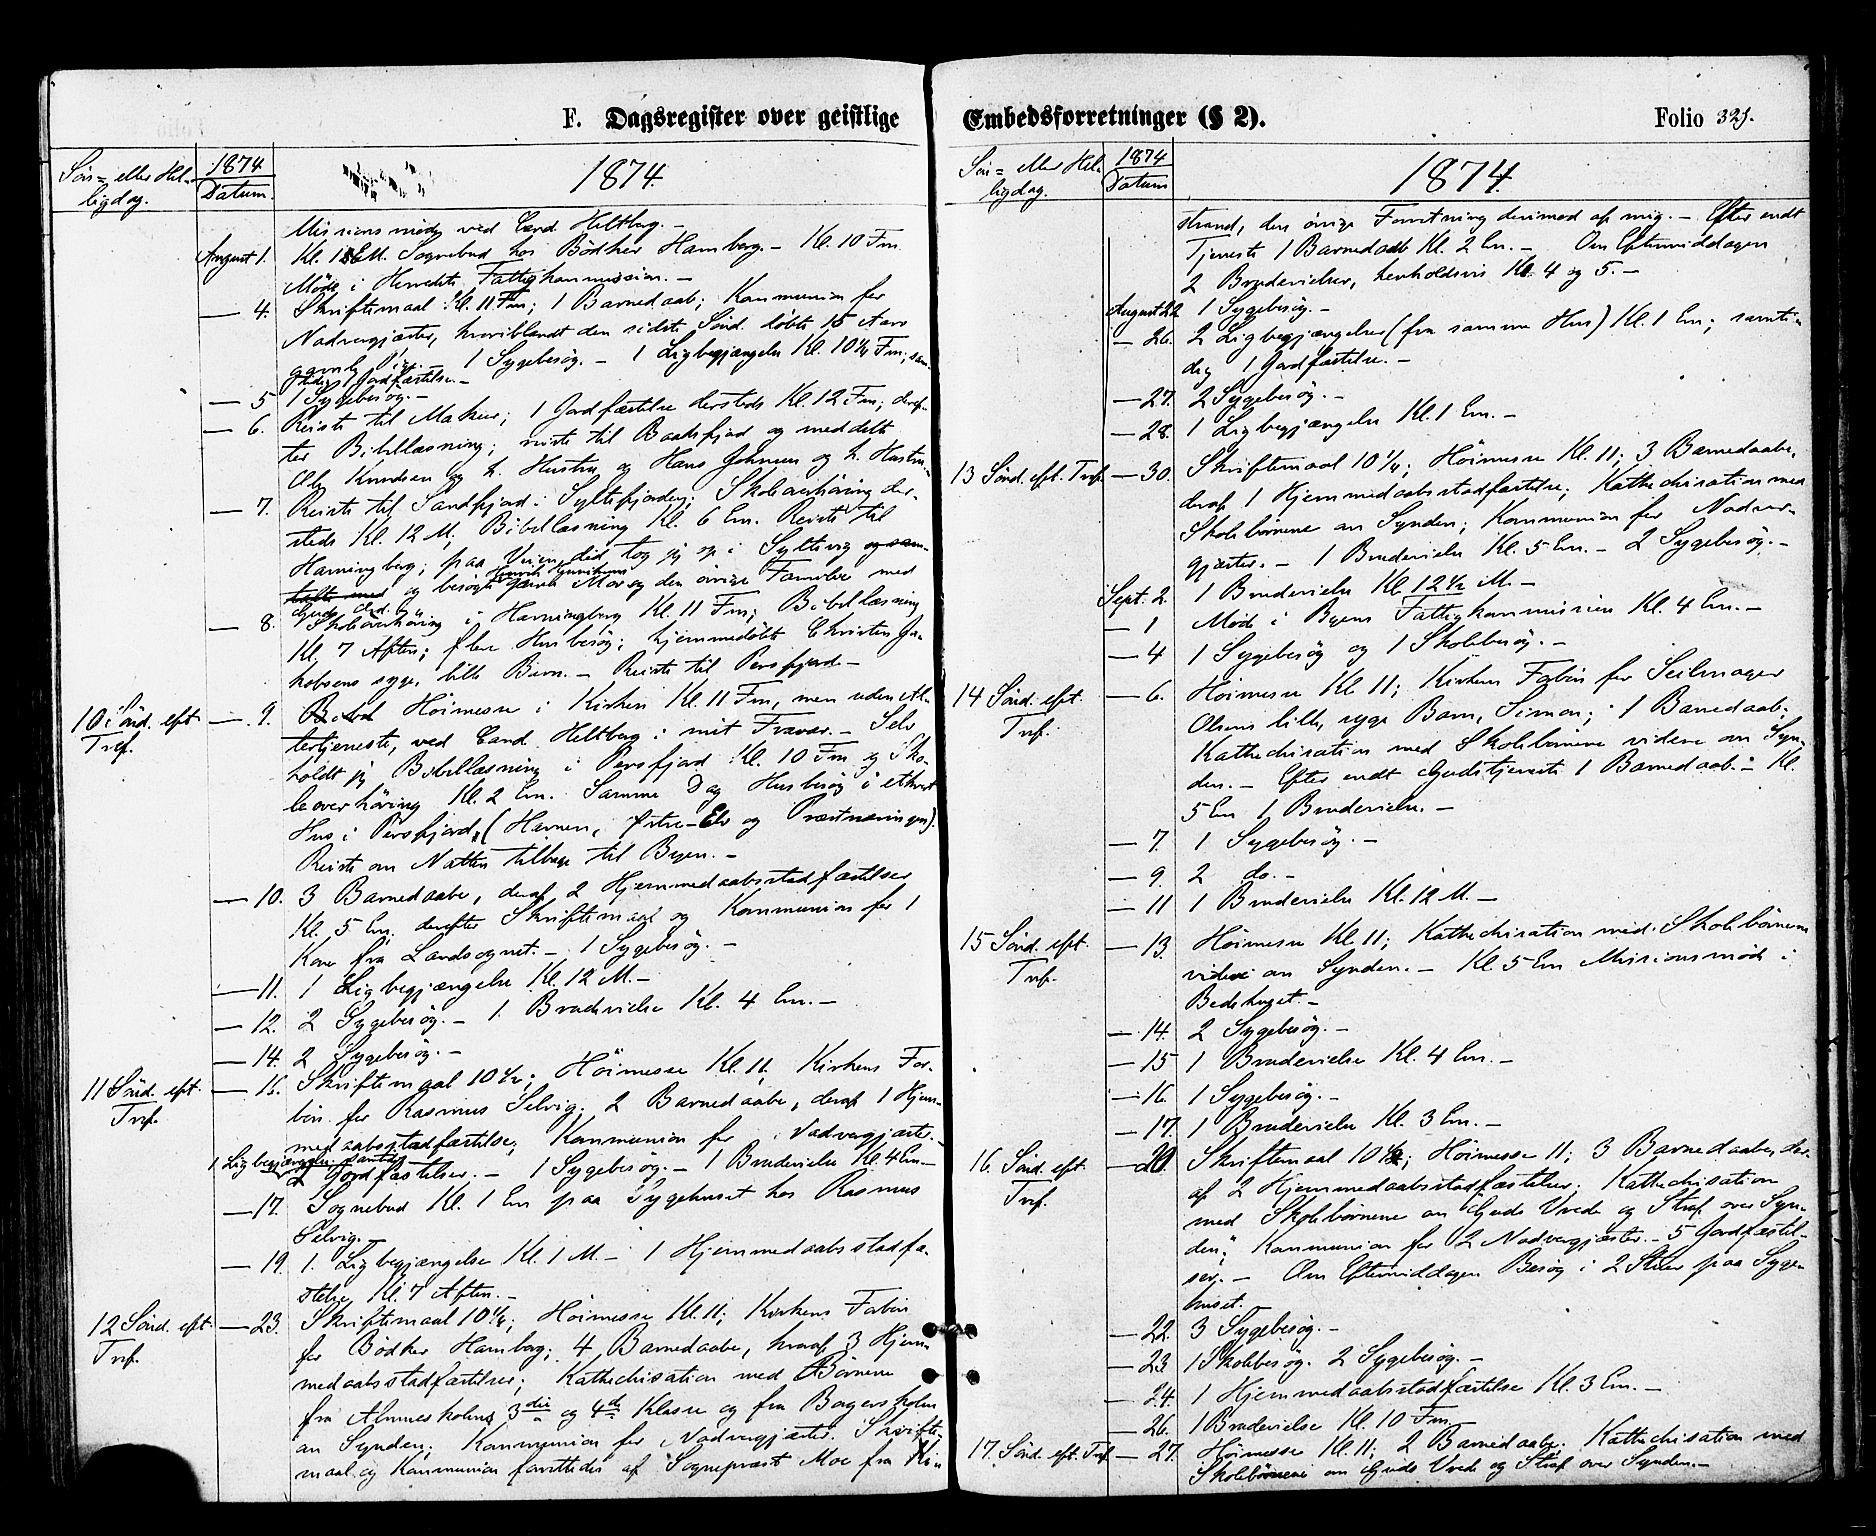 F. Dagsregister over geistlige
Søn= eller Hel-
ligdag.
1874
Datum.
1874.
Missionsmøde ved Cand. Heltberg. –
August 1. Kl. 12 M. Sognebud hos Bødker Hamberg. – Kl. 10 Fm.
Møde i Herredets Fattigkommission. –
— 4. Skriftemaal Kl. 11 Fm; 1 Barnedaab; Kommunion for
Nadvergjæster, hvoriblandt den sidste Sønd. døbte 15 Aars
gamle – 1 Sygebesøg. – 1 Ligbegjængelse Kl. 10 1/4 Fm; sam-
tidig 1 Jordfæstelse. –
— 5 1 Sygebesøg. –
— 6. Reiste til Makur; 1 Jordfæstelse dersteds Kl. 12 Fm; deref-
ter Bibellæsning; reiste til Baatsfjord og meddelte
Ole Knudsen og h. Hustru og Hans Johnsen og h. Hustru
— 7. Reiste til Sandfjord i Syltefjorden; Skoleoverhøring der-
steds Kl. 12 M; Bibellæsning Kl. 6 Em. Reiste til
Havningberg; paa Veien did tog jeg op i Syltevig og sam-
talte med og besøgte Henrik Henriksens Mor og den øvrige Familie med
Guds Ord. –
— 8. Skoleoverhøring i Havningberg Kl. 11 Fm; Bibellæsning
Kl. 7 Aften; flere Husbesøg; hjemmedøbte Christen Ja-
kobsens syge, lille Barn. – Reiste til Persfjord –
10 Sønd. eft.
Tref.
— 9. Høimesse i Kirken Kl. 11 Fm, men uden Al-
tertjeneste, ved Cand. Heltberg i mit Fravær. – Selv
holdt jeg Bibellæsning i Persfjord Kl. 10 Fm og Sko-
leoverhøring Kl. 2 Em. Samme Dag Husbesøg i ethvert
Hus i Persfjord, (Havnen, Østre-Elv og Præstnæringen).
Reiste om Natten tilbage til Byen. –
— 10. 3 Barnedaabe, deraf 2 Hjemmedaabsstadfæstelser
Kl. 5 Em. derefter Skriftemaal og Kommunion for 1
Kone fra Landsognet. – 1 Sygebesøg. –
— 11. 1 Ligbegjængelse Kl. 12 M. –
— 12. 2 Sygebesøg. – 1 Brudevielse Kl. 4 Em. –
— 14. 2 Sygebesøg. –
11 Sønd. eft.
Tref.
— 16. Skriftemaal 10 1/2; Høimesse Kl. 11; Kirkens For-
bøn for Rasmus Selvig; 2 Barnedaabe, deraf 1 Hjem-
medaabsstadfæstelse; Kommunion for Nadvergjæster. –
1 Ligbegjængelse; samtidig
2 Jordfæstelser. – 1 Sygebesøg. – 1 Brudevielse Kl. 4 Em –
— 17. Sognebud Kl. 1 Em paa Sygehuset hos Rasmus
Selvig. –
— 19. 1. Ligbegjængelse Kl. 1 M. – 1 Hjemmedaabsstadfæ-
stelse Kl. 7 Aften. –
12 Sønd. eft.
Tref.
— 23. Skriftemaal 10 1/4; Høimesse Kl. 11; Kirkens Forbøn
for Bødker Hamberg; 4 Barnedaabe, hvoraf 3 Hjem-
medaabsstadfæstelser; Kathechisation med Børnene
fra Almueskolens 3die og 4de Klasse og fra Borgerskolen
om Synden; Kommunion for Nadvergjæster. Skrifte-
maal og Kommunion forrettedes af Sognepræst Moe fra Ki-
Embedsforretninger (§ 2).
Folio 325.
Søn= eller Hel-
ligdag.
1874
Datum
1874.
strand, den øvrige Forretning derimod af mig. – Efter endt
Tjeneste 1 Barnedaab Kl. 2 Em. – Om Eftermiddagen
2 Brudevielser, henholdsvis Kl. 4 og 5. –
August 22. 1 Sygebesøg. –
— 26. 2 Ligbegjængelser (fra samme Hus) Kl. 1 Em; samti-
dig 1 Jordfæstelse. –
— 27. 2 Sygebesøg. –
— 28. 1 Ligbegjængelse Kl. 1 Em. –
13 Sønd. eft. Tref. — 30. Skriftemaal 10 1/4; Høimesse Kl. 11; 3 Barnedaabe,
deraf 1 Hjemmedaabsstadfæstelse; Kathechisation med
Skolebørnene om Synden; Kommunion for Nadver-
gjæster. – 1 Brudevielse Kl. 5 Em. – 2 Sygebesøg. –
Sept. 2. 1 Brudevielse Kl. 12 1/2 M. –
— 1 Møde i Byens Fattigkommission Kl. 4 Em. –
— 4 1 Sygebesøg og 1 Skolebesøg. –
14 Sønd. eft.
Tref.
— 6. Høimesse Kl. 11; Kirkens Forbøn for Seilmager
Olsens lille, syge Barn, Simon; 1 Barnedaab;
Kathechisation med Skolebørnene videre om Syn-
den. – Efter endt Gudstjeneste 1 Barnedaab. – Kl.
5 Em 1 Brudevielse. –
— 7 1 Sygebesøg. –
— 9. 2 do. –
— 11 1 Brudevielse Kl. 12 M. –
15 Sønd. eft.
Tref.
— 13. Høimesse Kl. 11; Kathechisation med Skolebørnene
videre om Synden. – Kl. 5 Em Missionsmøde i
Bedehuset. –
— 14. 2 Sygebesøg. –
— 15 1 Brudevielse Kl. 4 Em. –
— 16. 1 Sygebesøg. –
— 17. 1 Brudevielse Kl. 3 Em. –
16. Sønd. eft.
Tref.
— 20. Skriftemaal 10 1/2; Høimesse 11; 3 Barnedaabe, der-
af 2 Hjemmedaabsstadfæstelser; Kathechisation
med Skolebørnene om Guds Vrede og Straf over Syn-
den; Kommunion for 2 Nadvergjæster. – 5 Jordfæstel-
ser. – Om Eftermiddagen Besøg i 2 Stuer paa Syge-
huset.
— 22. 3 Sygebesøg. –
— 23 1 Skolebesøg. 2 Sygebesøg. –
— 24. 1 Hjemmedaabsstadfæstelse Kl. 3 Em. –
— 26. 1 Brudevielse Kl. 10 Fm. –
17 Sønd. eft. Tref. — 27. Høimesse Kl. 11; 2 Barnedaabe; Kathechisation med
Skolebørnene om Guds Vrede og Straf over Synden. –